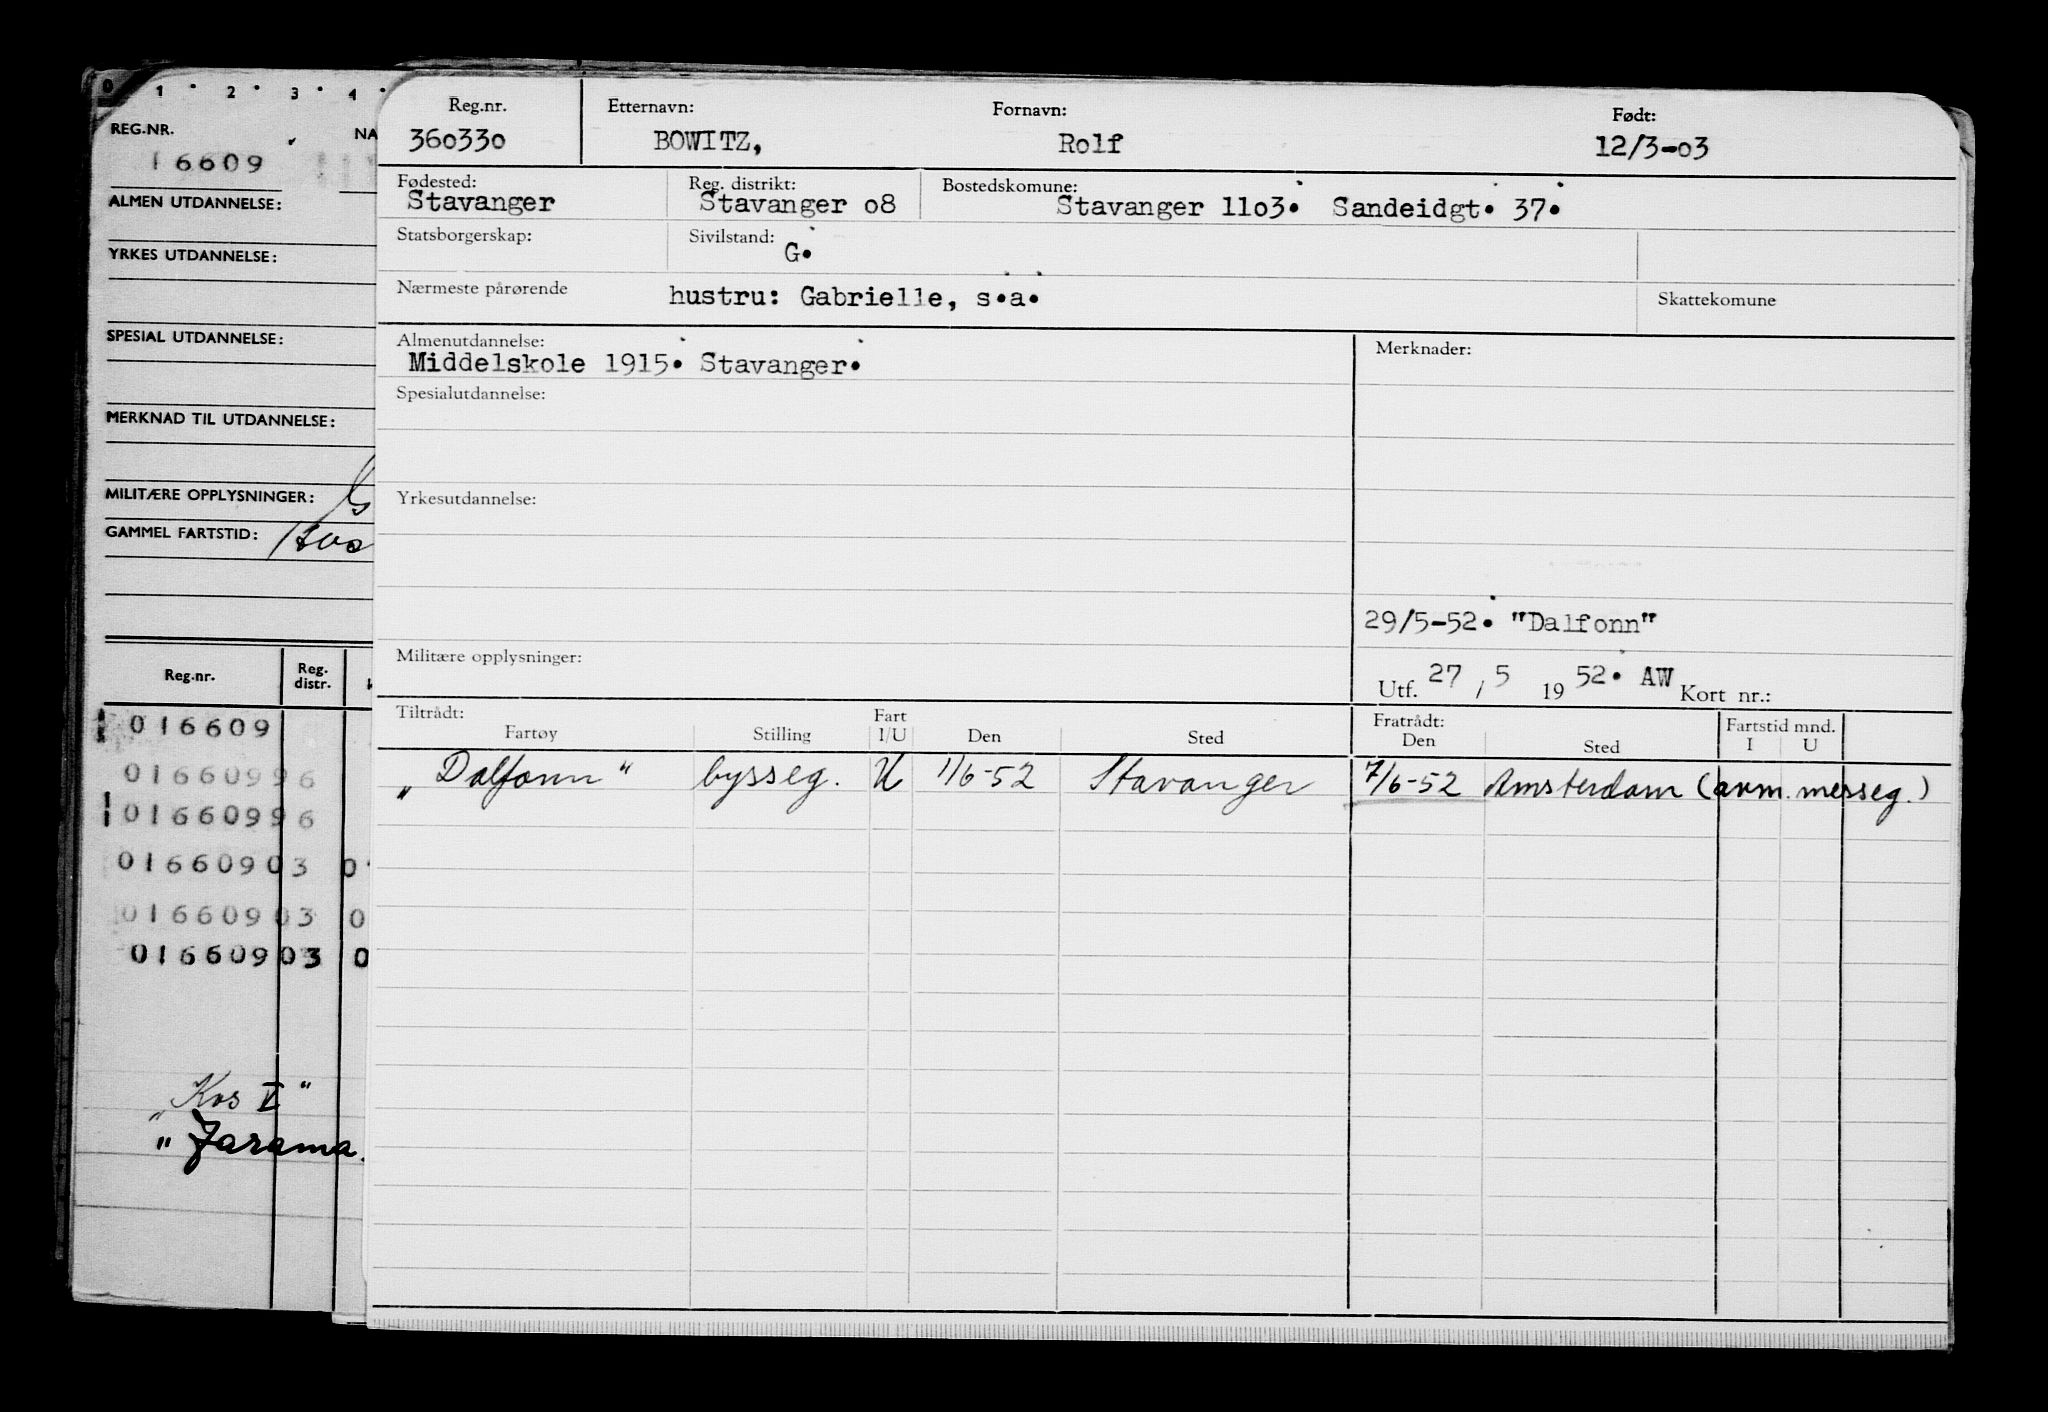 0 1 2 3 4
REG.NR. NA
16609
ALMEN UTDANNELSE:
YRKES UTDANNELSE:
SPESIAL UTDANNELSE:
MERKNAD TIL UTDANNELSE:
MILITÆRE OPPLYSNINGER:
GAMMEL FARTSTID:
Reg.nr. Reg. distr.
016609
01660996
01660996
01660903 0
01660903 0
01660903 0
„Kos V“
„Jarama
Reg.nr. Etternavn: Fornavn: Født:
360330 BOWITZ, Rolf 12/3-03
Fødested: Reg. distrikt: Bostedskomune:
Stavanger Stavanger o8 Stavanger 11o3. Sandeidgt. 37.
Statsborgerskap: Sivilstand: G.
Nærmeste pårørende hustru: Gabrielle, s.a. Skattekomune
Almenutdannelse: Merknader:
Middelskole 1915. Stavanger.
Spesialutdannelse:
Yrkesutdannelse:
29/5-52. "Dalfonn"
Militære opplysninger:
Utf. 27 / 5 19 52. AW Kort nr.:
Tiltrådt: Fart Fratrådt: Fartstid mnd.
Fartøy Stilling I/U Den Sted Den Sted I U
„Dalfonn“ bysseg. U 1/6-52 Stavanger 7/6-52 Amsterdam (avm. messeg.)